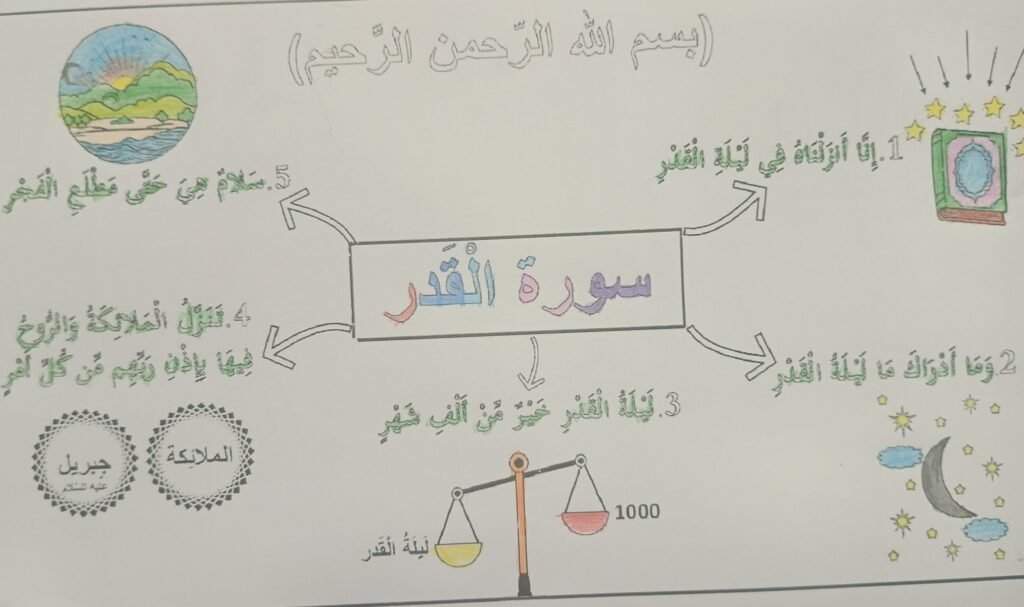 (بسم الله الرّحمن الرَّحيم)
سورة الْقَدر
1.إِنَّا أَنزَلْنَاهُ فِي لَيْلَةِ الْقَدْرِ
2.وَمَا أَدْرَاكَ مَا لَيْلَةُ الْقَدْرِ
3.لَيْلَةُ الْقَدْرِ خَيْرٌ مِّنْ أَلْفِ شَهْرٍ
1000
لَيلَةُ الْقَدر
4.تَنَزَّلُ الْمَلَائِكَةُ وَالرُّوحُ
فِيهَا بِإِذْنِ رَبِّهِم مِّن كُلِّ أَمْرٍ
الملائِكة
جبريل
عليه السّلام
5.سَلَامٌ هِيَ حَتَّى مَطْلَعِ الْفَجْرِ